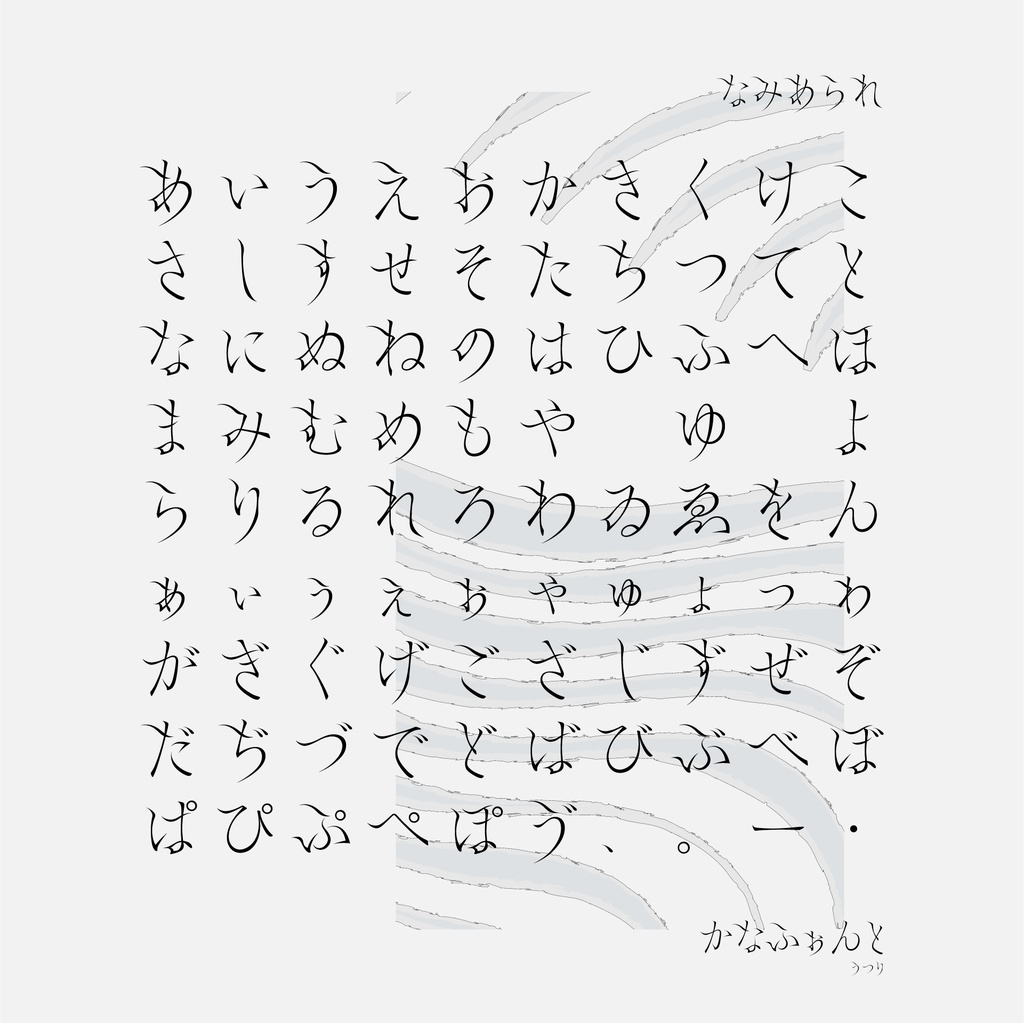 なみあられ
あいうえおかきくけこ
さしすせそたちつてと
なにぬねのはひふへほ
まみむめもや ゆ よ
らりるれろわゐゑをん
ぁぃぅぇぉゃゅょっゎ
がぎぐげござじずぜぞ
だぢづでどばびぶべぼ
ぱぴぷぺぽゔ、。ー・
かなふぉんと
うつり